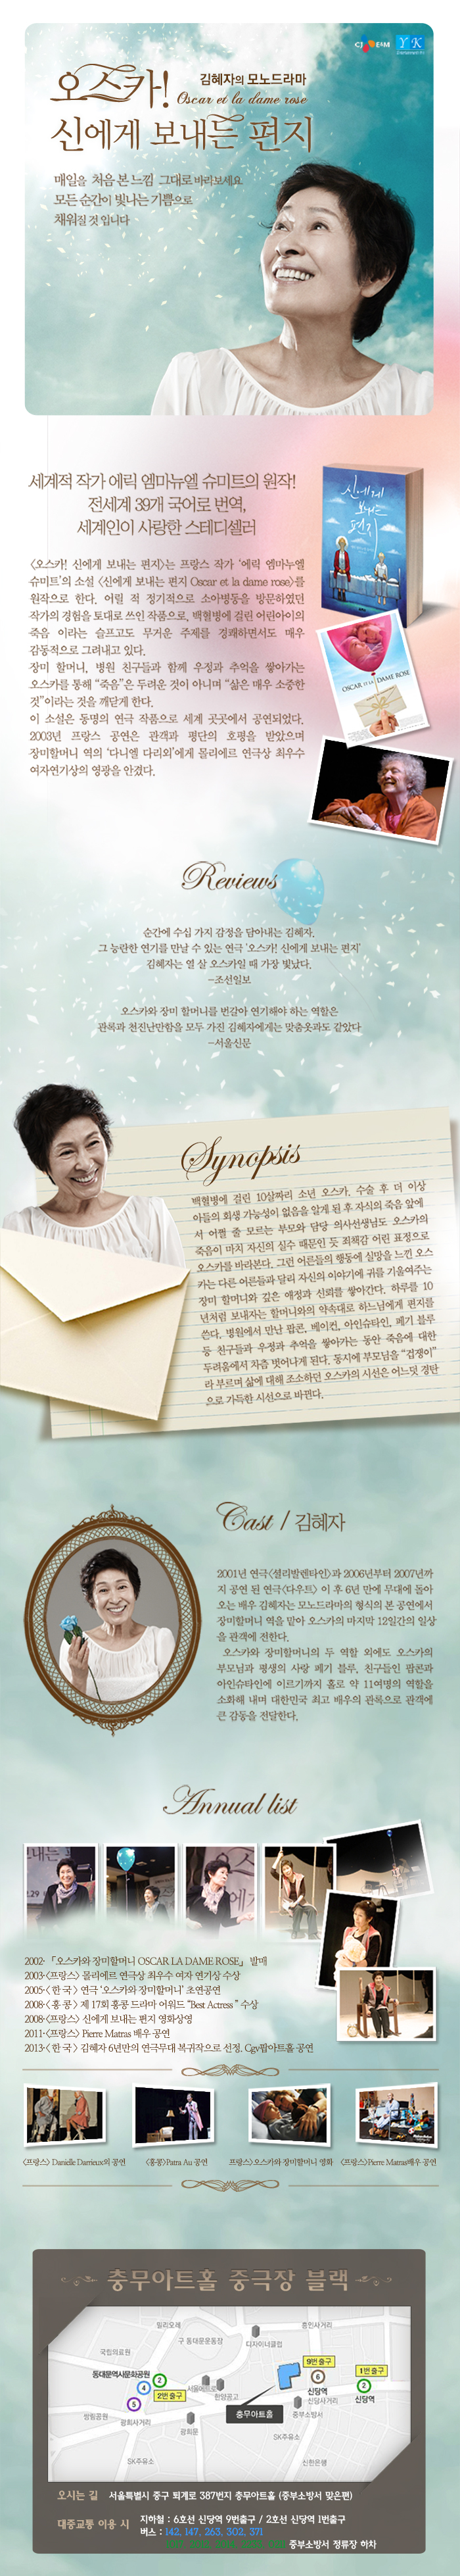 CJ E&M YK
오스카!
김혜자의 모노드라마
Oscar et la dame rose
신에게 보내는 편지
매일을 처음 본 느낌 그대로 바라보세요
모든 순간이 빛나는 기쁨으로
채워질 것 입니다
세계적 작가 에릭 엠마뉴엘 슈미트의 원작!
전세계 39개 국어로 번역,
세계인이 사랑한 스테디셀러
<오스카! 신에게 보내는 편지>는 프랑스 작가 '에릭 엠마누엘
슈미트'의 소설 <신에게 보내는 편지 Oscar et la dame rose>를
원작으로 한다. 어릴 적 정기적으로 소아병동을 방문하였던
작가의 경험을 토대로 쓰인 작품으로, 백혈병에 걸린 어린아이의
죽음 이라는 슬프고도 무거운 주제를 경쾌하면서도 매우
감동적으로 그려내고 있다.
장미 할머니, 병원 친구들과 함께 우정과 추억을 쌓아가는
오스카를 통해 "죽음"은 두려운 것이 아니며 "삶은 매우 소중한
것"이라는 것을 깨닫게 한다.
이 소설은 동명의 연극 작품으로 세계 곳곳에서 공연되었다.
2003년 프랑스 공연은 관객과 평단의 호평을 받았으며
장미할머니 역의 '다니엘 다리외'에게 몰리에르 연극상 최우수
여자연기상의 영광을 안겼다.
신에게
보내는
편지
OSCAR ET LA DAME ROSE
Reviews
순간에 수십 가지 감정을 담아내는 김혜자.
그 능란한 연기를 만날 수 있는 연극 '오스카! 신에게 보내는 편지'
김혜자는 열 살 오스카일 때 가장 빛났다.
-조선일보
오스카와 장미 할머니를 번갈아 연기해야 하는 역할은
관록과 천진난만함을 모두 가진 김혜자에게는 맞춤옷과도 같았다
-서울신문
Synopsis
백혈병에 걸린 10살짜리 소년 오스카. 수술 후 더 이상
아들의 회생 가능성이 없음을 알게 된 후 자식의 죽음 앞에
서 어쩔 줄 모르는 부모와 담당 의사선생님도 오스카의
죽음이 마치 자신의 실수 때문인 듯 죄책감 어린 표정으로
오스카를 바라본다. 그런 어른들의 행동에 실망을 느낀 오스
카는 다른 어른들과 달리 자신의 이야기에 귀를 기울여주는
장미 할머니와 깊은 애정과 신뢰를 쌓아간다. 하루를 10
년처럼 보내자는 할머니와의 약속대로 하느님에게 편지를
쓴다. 병원에서 만난 팝콘, 베이컨, 아인슈타인, 페기 블루
등 친구들과 우정과 추억을 쌓아가는 동안 죽음에 대한
두려움에서 차츰 벗어나게 된다. 동시에 부모님을 "겁쟁이"
라 부르며 삶에 대해 조소하던 오스카의 시선은 어느덧 경탄
으로 가득한 시선으로 바뀐다.
Cast / 김혜자
2001년 연극<셜리발렌타인>과 2006년부터 2007년까
지 공연 된 연극<다우트> 이 후 6년 만에 무대에 돌아
오는 배우 김혜자는 모노드라마의 형식의 본 공연에서
장미할머니 역을 맡아 오스카의 마지막 12일간의 일상
을 관객에 전한다.
오스카와 장미할머니의 두 역할 외에도 오스카의
부모님과 평생의 사랑 페기 블루, 친구들인 팝콘과
아인슈타인에 이르기까지 홀로 약 11여명의 역할을
소화해 내며 대한민국 최고 배우의 관록으로 관객에
큰 감동을 전달한다.
Annual list
2002- 「오스카와 장미할머니 OSCAR LA DAME ROSE」 발매
2003-<프랑스> 몰리에르 연극상 최우수 여자 연기상 수상
2005-< 한 국 > 연극 '오스카와 장미할머니' 초연공연
2008-< 홍 콩 > 제 17회 홍콩 드라마 어워드 "Best Actress " 수상
2008-<프랑스> 신에게 보내는 편지 영화상영
2011-<프랑스> Pierre Matras 배우 공연
2013-< 한 국 > 김혜자 6년만의 연극무대 복귀작으로 선정. Cgv팝아트홀 공연
<프랑스> Danielle Darrieux의 공연 <홍콩>Patra Au 공연 프랑스>오스카와 장미할머니 영화 <프랑스>Pierre Matras배우 공연
충무아트홀 중극장 블랙
밀리오레
흥인사거리
구 동대문운동장
디자이너클럽
국립의료원
9번 출구
동대문역사문화공원
1번 출구
2
4
5
2번 출구
서울메트로
한양공고
6
신당역
신당사거리
2
신당역
쌍림공원
광희사거리
광희문
충무아트홀
중부소방서
SK주유소
SK주유소
신한은행
오시는 길 서울특별시 중구 퇴계로 387번지 충무아트홀 (중부소방서 맞은편)
대중교통 이용 시 지하철 : 6호선 신당역 9번출구 / 2호선 신당역 1번출구
버스 : 142, 147, 263, 302, 371
중부소방서 정류장 하차